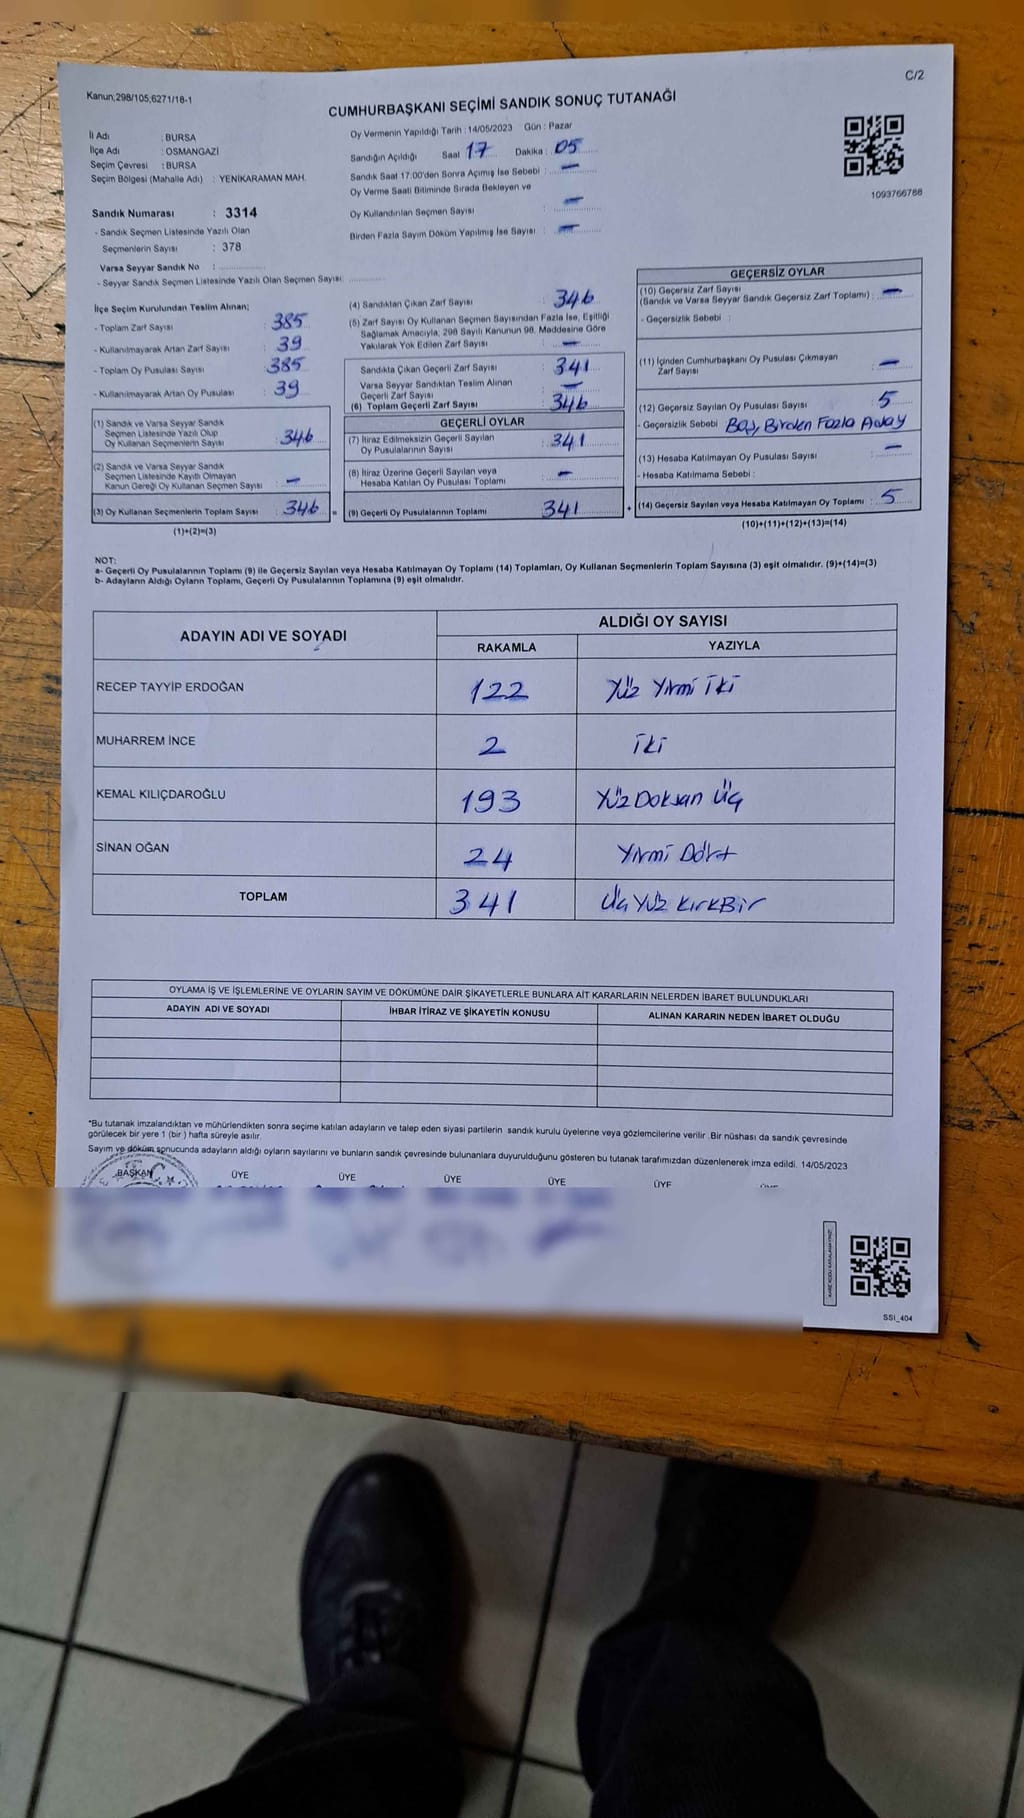 C/2
Kanun,298/105,6271/18-1
CUMHURBAŞKANI SEÇİMİ SANDIK SONUÇ TUTANAĞI
İl Adı : BURSA
İlçe Adı : OSMANGAZİ
Seçim Çevresi : BURSA
Seçim Bölgesi (Mahalle Adı) : YENİKARAMAN MAH.
Sandık Numarası : 3314
- Sandık Seçmen Listesinde Yazılı Olan
Seçmenlerin Sayısı : 378
Varsa Seyyar Sandık No :
- Seyyar Sandık Seçmen Listesinde Yazılı Olan Seçmen Sayısı:
Oy Vermenin Yapıldığı Tarih : 14/05/2023 Gün : Pazar
Sandığın Açıldığı Saat 17 Dakika : 05
Sandık Saat 17.00'den Sonra Açımış İse Sebebi : -
Oy Verme Saati Bitiminde Sırada Bekleyen ve
Oy Kullandırılan Seçmen Sayısı : -
Birden Fazla Sayım Döküm Yapılmış İse Sayısı : -
1093766786
İlçe Seçim Kurulundan Teslim Alınan;
- Toplam Zarf Sayısı : 385
- Kullanılmayarak Artan Zarf Sayısı : 39
- Toplam Oy Pusulası Sayısı : 385
- Kullanılmayarak Artan Oy Pusulası : 39
(1) Sandık ve Varsa Seyyar Sandık
Seçmen Listesinde Yazılı Olup
Oy Kullanan Seçmenlerin Sayısı : 346
(2) Sandık ve Varsa Seyyar Sandık
Seçmen Listesinde Kayıtlı Olmayan
Kanun Gereği Oy Kullanan Seçmen Sayısı : -
(3) Oy Kullanan Seçmenlerin Toplam Sayısı : 346
(1)+(2)=(3)
(4) Sandıktan Çıkan Zarf Sayısı 346
(5) Zarf Sayısı Oy Kullanan Seçmen Sayısından Fazla İse, Eşitliği
Sağlamak Amacıyla, 298 Sayılı Kanunun 98. Maddesine Göre
Yakılarak Yok Edilen Zarf Sayısı : -
Sandıkta Çıkan Geçerli Zarf Sayısı : 341
Varsa Seyyar Sandıktan Teslim Alınan
Geçerli Zarf Sayısı : -
(6) Toplam Geçerli Zarf Sayısı : 346
GEÇERLİ OYLAR
(7) İtiraz Edilmeksizin Geçerli Sayılan
Oy Pusulasının Sayısı : 341
(8) İtiraz Üzerine Geçerli Sayılan veya
Hesaba Katılan Oy Pusulası Toplamı : -
(9) Geçerli Oy Pusulalarının Toplamı : 341
GEÇERSİZ OYLAR
(10) Geçersiz Zarf Sayısı
(Sandık ve Varsa Seyyar Sandık Geçersiz Zarf Toplamı) : -
- Geçersizlik Sebebi :
(11) İçinden Cumhurbaşkanı Oy Pusulası Çıkmayan
Zarf Sayısı : -
(12) Geçersiz Sayılan Oy Pusulası Sayısı : 5
- Geçersizlik Sebebi Boş, Birden Fazla Aday
(13) Hesaba Katılmayan Oy Pusulası Sayısı : -
- Hesaba Katılmama Sebebi :
(14) Geçersiz Sayılan veya Hesaba Katılmayan Oy Toplamı : 5
(10)+(11)+(12)+(13)=(14)
NOT:
a- Geçerli Oy Pusulalarının Toplamı (9) ile Geçersiz Sayılan veya Hesaba Katılmayan Oy Toplamı (14) Toplamları, Oy Kullanan Seçmenlerin Toplam Sayısına (3) eşit olmalıdır. (9)+(14)=(3)
b- Adayların Aldığı Oyların Toplamı, Geçerli Oy Pusulalarının Toplamına (9) eşit olmalıdır.
ADAYIN ADI VE SOYADI
ALDIĞI OY SAYISI
RAKAMLA YAZIYLA
RECEP TAYYİP ERDOĞAN 122 Yüz Yirmi iki
MUHARREM İNCE 2 iki
KEMAL KILIÇDAROĞLU 193 Yüz Doksan Üç
SİNAN OĞAN 24 Yirmi Dört
TOPLAM 341 Üç Yüz KırkBir
OYLAMA İŞ VE İŞLEMLERİNE VE OYLARIN SAYIM VE DÖKÜMÜNE DAİR ŞİKAYETLERLE BUNLARA AİT KARARLARIN NELERDEN İBARET BULUNDUKLARI
ADAYIN ADI VE SOYADI İHBAR İTİRAZ VE ŞİKAYETİN KONUSU ALINAN KARARIN NEDEN İBARET OLDUĞU
*Bu tutanak imzalandıktan ve mühürlendikten sonra seçime katılan adayların ve talep eden siyasi partilerin sandık kurulu üyelerine veya gözlemcilerine verilir. Bir nüshası da sandık çevresinde
görülecek bir yere 1 (bir) hafta süreyle asılır.
Sayım ve döküm sonucunda adayların aldığı oyların sayılarını ve bunların sandık çevresinde bulunanlara duyurulduğunu gösteren bu tutanak tarafımızdan düzenlenerek imza edildi. 14/05/2023
BAŞKAN ÜYE ÜYE ÜYE ÜYE ÜYE
SSI_404